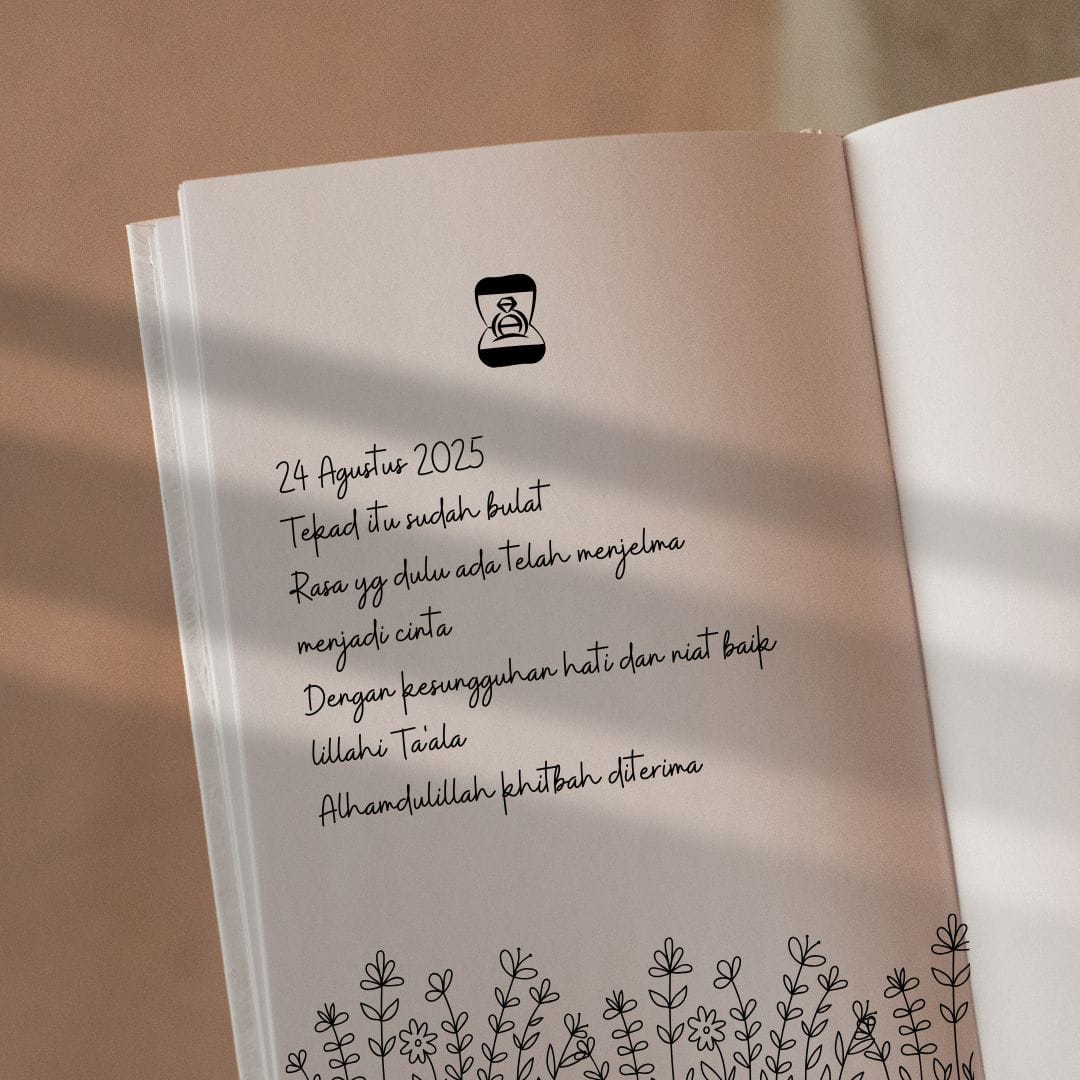 24 Agustus 2025
Tekad itu sudah bulat
Rasa yg dulu ada telah menjelma
menjadi cinta
Dengan kesungguhan hati dan niat baik
lillahi Ta'ala
Alhamdulillah khitbah diterima